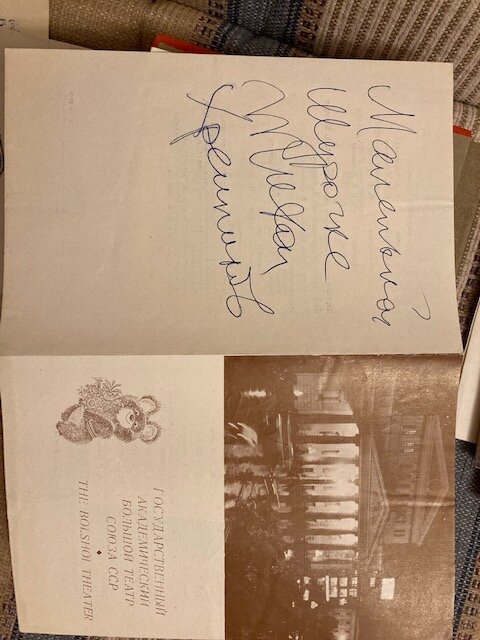 Маленькой
Шурочке
Тихон
Хренников
ГОСУДАРСТВЕННЫЙ
АКАДЕМИЧЕСКИЙ
БОЛЬШОЙ ТЕАТР
СОЮЗА ССР
THE BOLSHOI THEATER